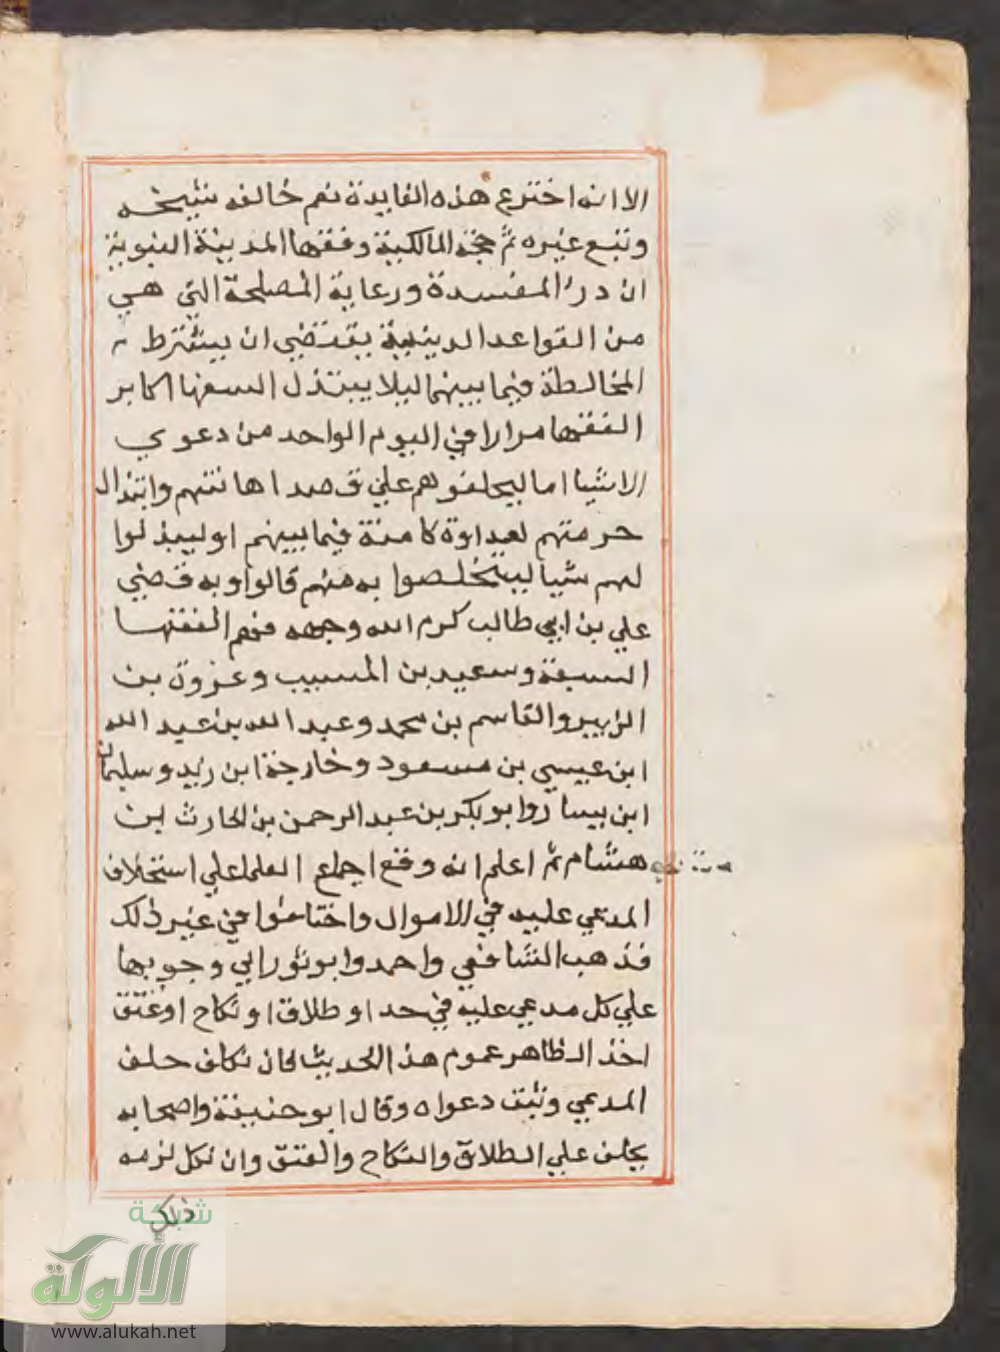 الا انه اخترع هذه الفايدة نعم خالف شيخه
وتبع غيره ثم حجة المالكية وفقها المدينة النبوية
ان درء المفسدة ورعاية المصلحة التي هي
من القواعد الدينية يقتضي ان يشترط
المخالطة فيما بينهما ليلا يبتذل السفها اكابر
الفقها مرارا في اليوم الواحد من دعوي
الاشيا اما ليحلفوهم علي قصد اهانتهم وابتذال
حرمتهم لعداوة كامنة فيما بينهم او ليبذلوا
لهم شيا ليتخلصوا به منهم قالوا وبه قضي
علي بن ابي طالب كرم الله وجهه فهم الفقها
السبعة وسعيد بن المسيب وعروة بن
الزبير والقاسم بن محمد وعبد الله بن عبد الله
ابن عيسي بن مسعود وخارجة ابن زيد وسليمان
ابن يسار وابو بكر بن عبد الرحمن بن الحارث ابن
هشام ثم اعلم انه وقع اجماع العلما علي استحلاف
المدعي عليه في الاموال واختلفوا في غير ذلك
فذهب الشافعي واحمد وابو ثور الي وجوبها
علي كل مدعي عليه في حد او طلاق او نكاح او عتق
اخذ الظاهر عموم هذ الحديث فان نكل حلف
المدعي وثبت دعواه وقال ابو حنيفة واصحابه
يحلف علي الطلاق والنكاح والعتق وان نكل لزمه
ذلك
شبكة
الألوكة
www.alukah.net